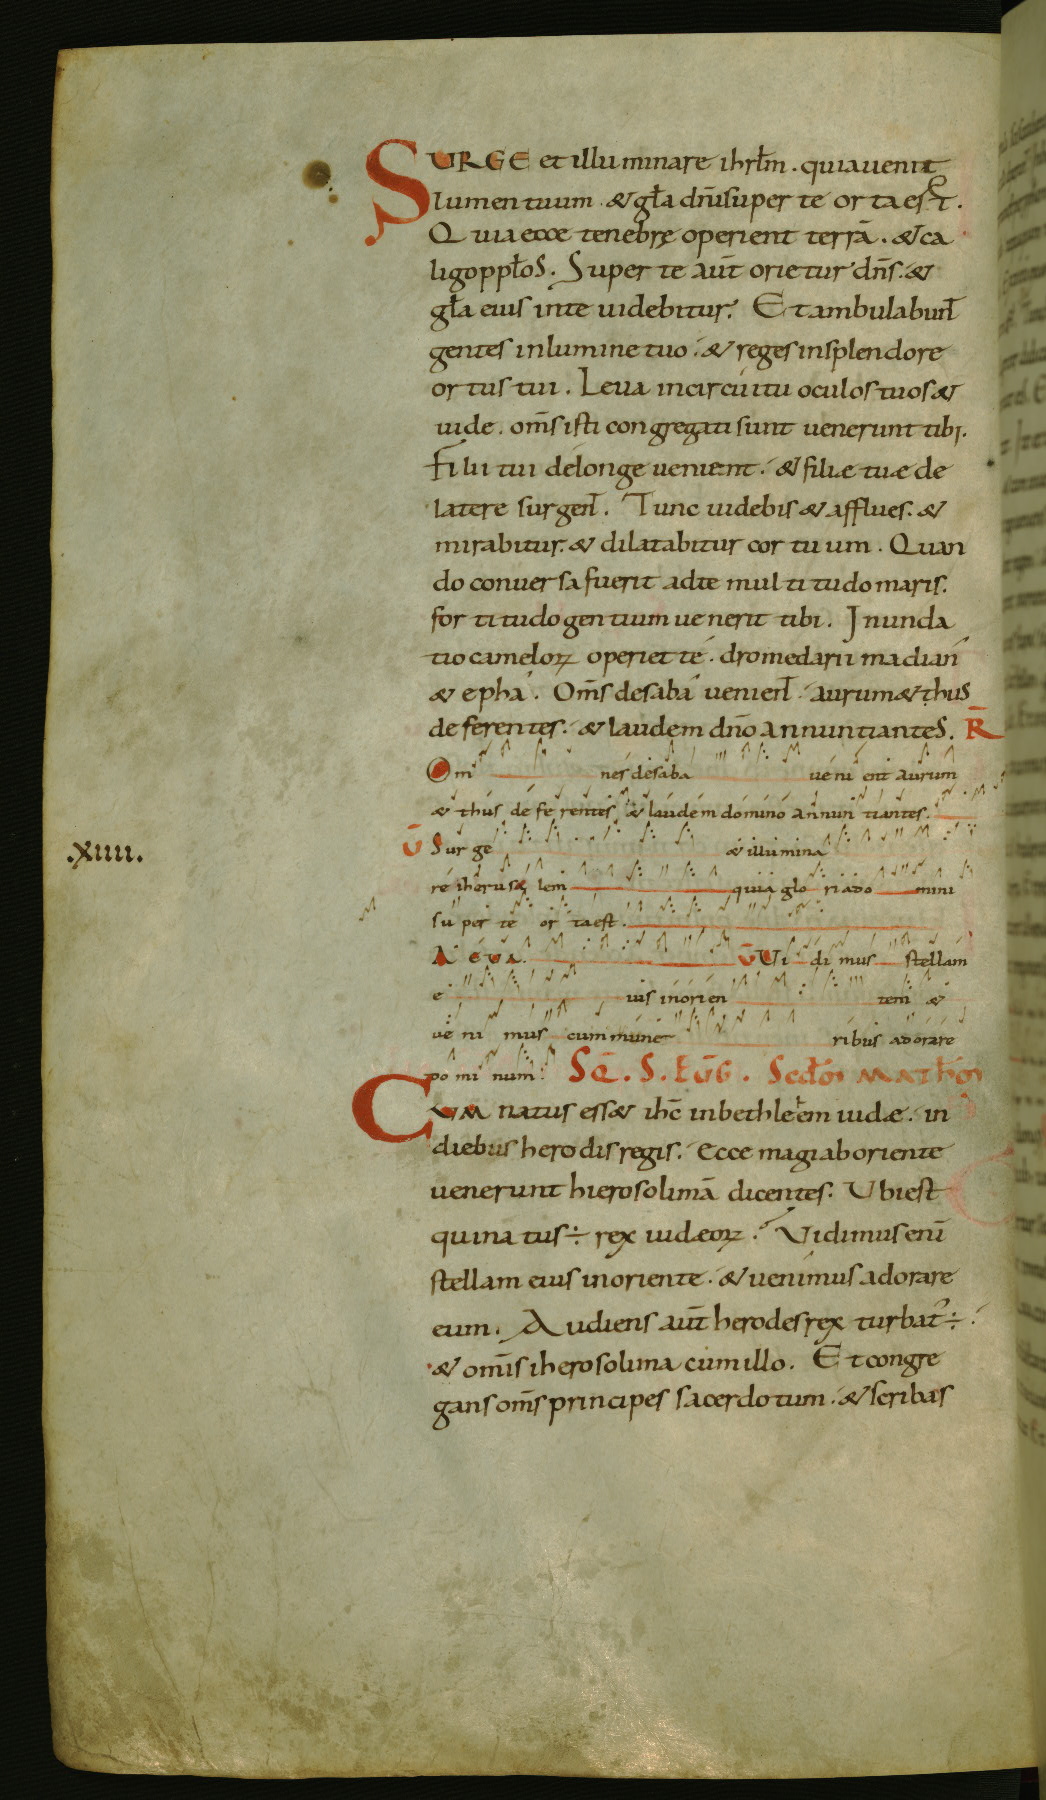 SURGE et illuminare ihrl̄m. quia uenit
lumen tuum. & gl̄a dn̄i super te orta est.
Quia ecce tenebrę operient terrā. & ca
ligo ppl̄os. Super te aut̄ orietur dn̄s. &
gl̄a eius in te uidebitur. Et ambulabun̄t
gentes in lumine tuo. & reges in splendore
ortus tui. Leua in circuitu oculos tuos &
uide. om̄s isti congregati sunt uenerunt tibi.
Filii tui de longe uenient. & filiæ tuæ de
latere surgen̄t. Tunc uidebis & afflues. &
mirabitur. & dilatabitur cor tuum. Quan
do conuersa fuerit ad te multitudo maris.
fortitudo gentium uenerit tibi. Inunda
tio cameloꝝ operiet te. dromedarii madian
& epha. Om̄s de saba uenien̄t. aurum & thus
deferentes. & laudem dn̄o annuntiantes. R̄
Om nes de saba ueni ent aurum
& thus defe rentes & laudem domino annun tiantes.
.xiiii. ū Sur ge & illumina
re iherusa lem quia glo ria do mini
super te or ta est.
A e u a. ū Ui di mus stellam
e ius in orien tem &
ue ni mus cum mune ribus adorare
do mi num. SQ̄. S. EŪG. Scd̄m MATH̄
CUM natus ess& ih̄c in bethleem iudæ. in
diebus herodis regis. Ecce magi ab oriente
uenerunt hierosolimā dicentes. Ubi est
qui natus ÷ rex iudæoꝝ. Uidimus enī
stellam eius in oriente. & uenimus adorare
eum. Audiens aut̄ herodes rex turbat᷒ ÷.
& om̄is iherosolima cum illo. Et congre
gans om̄s principes sacerdotum. & scribas